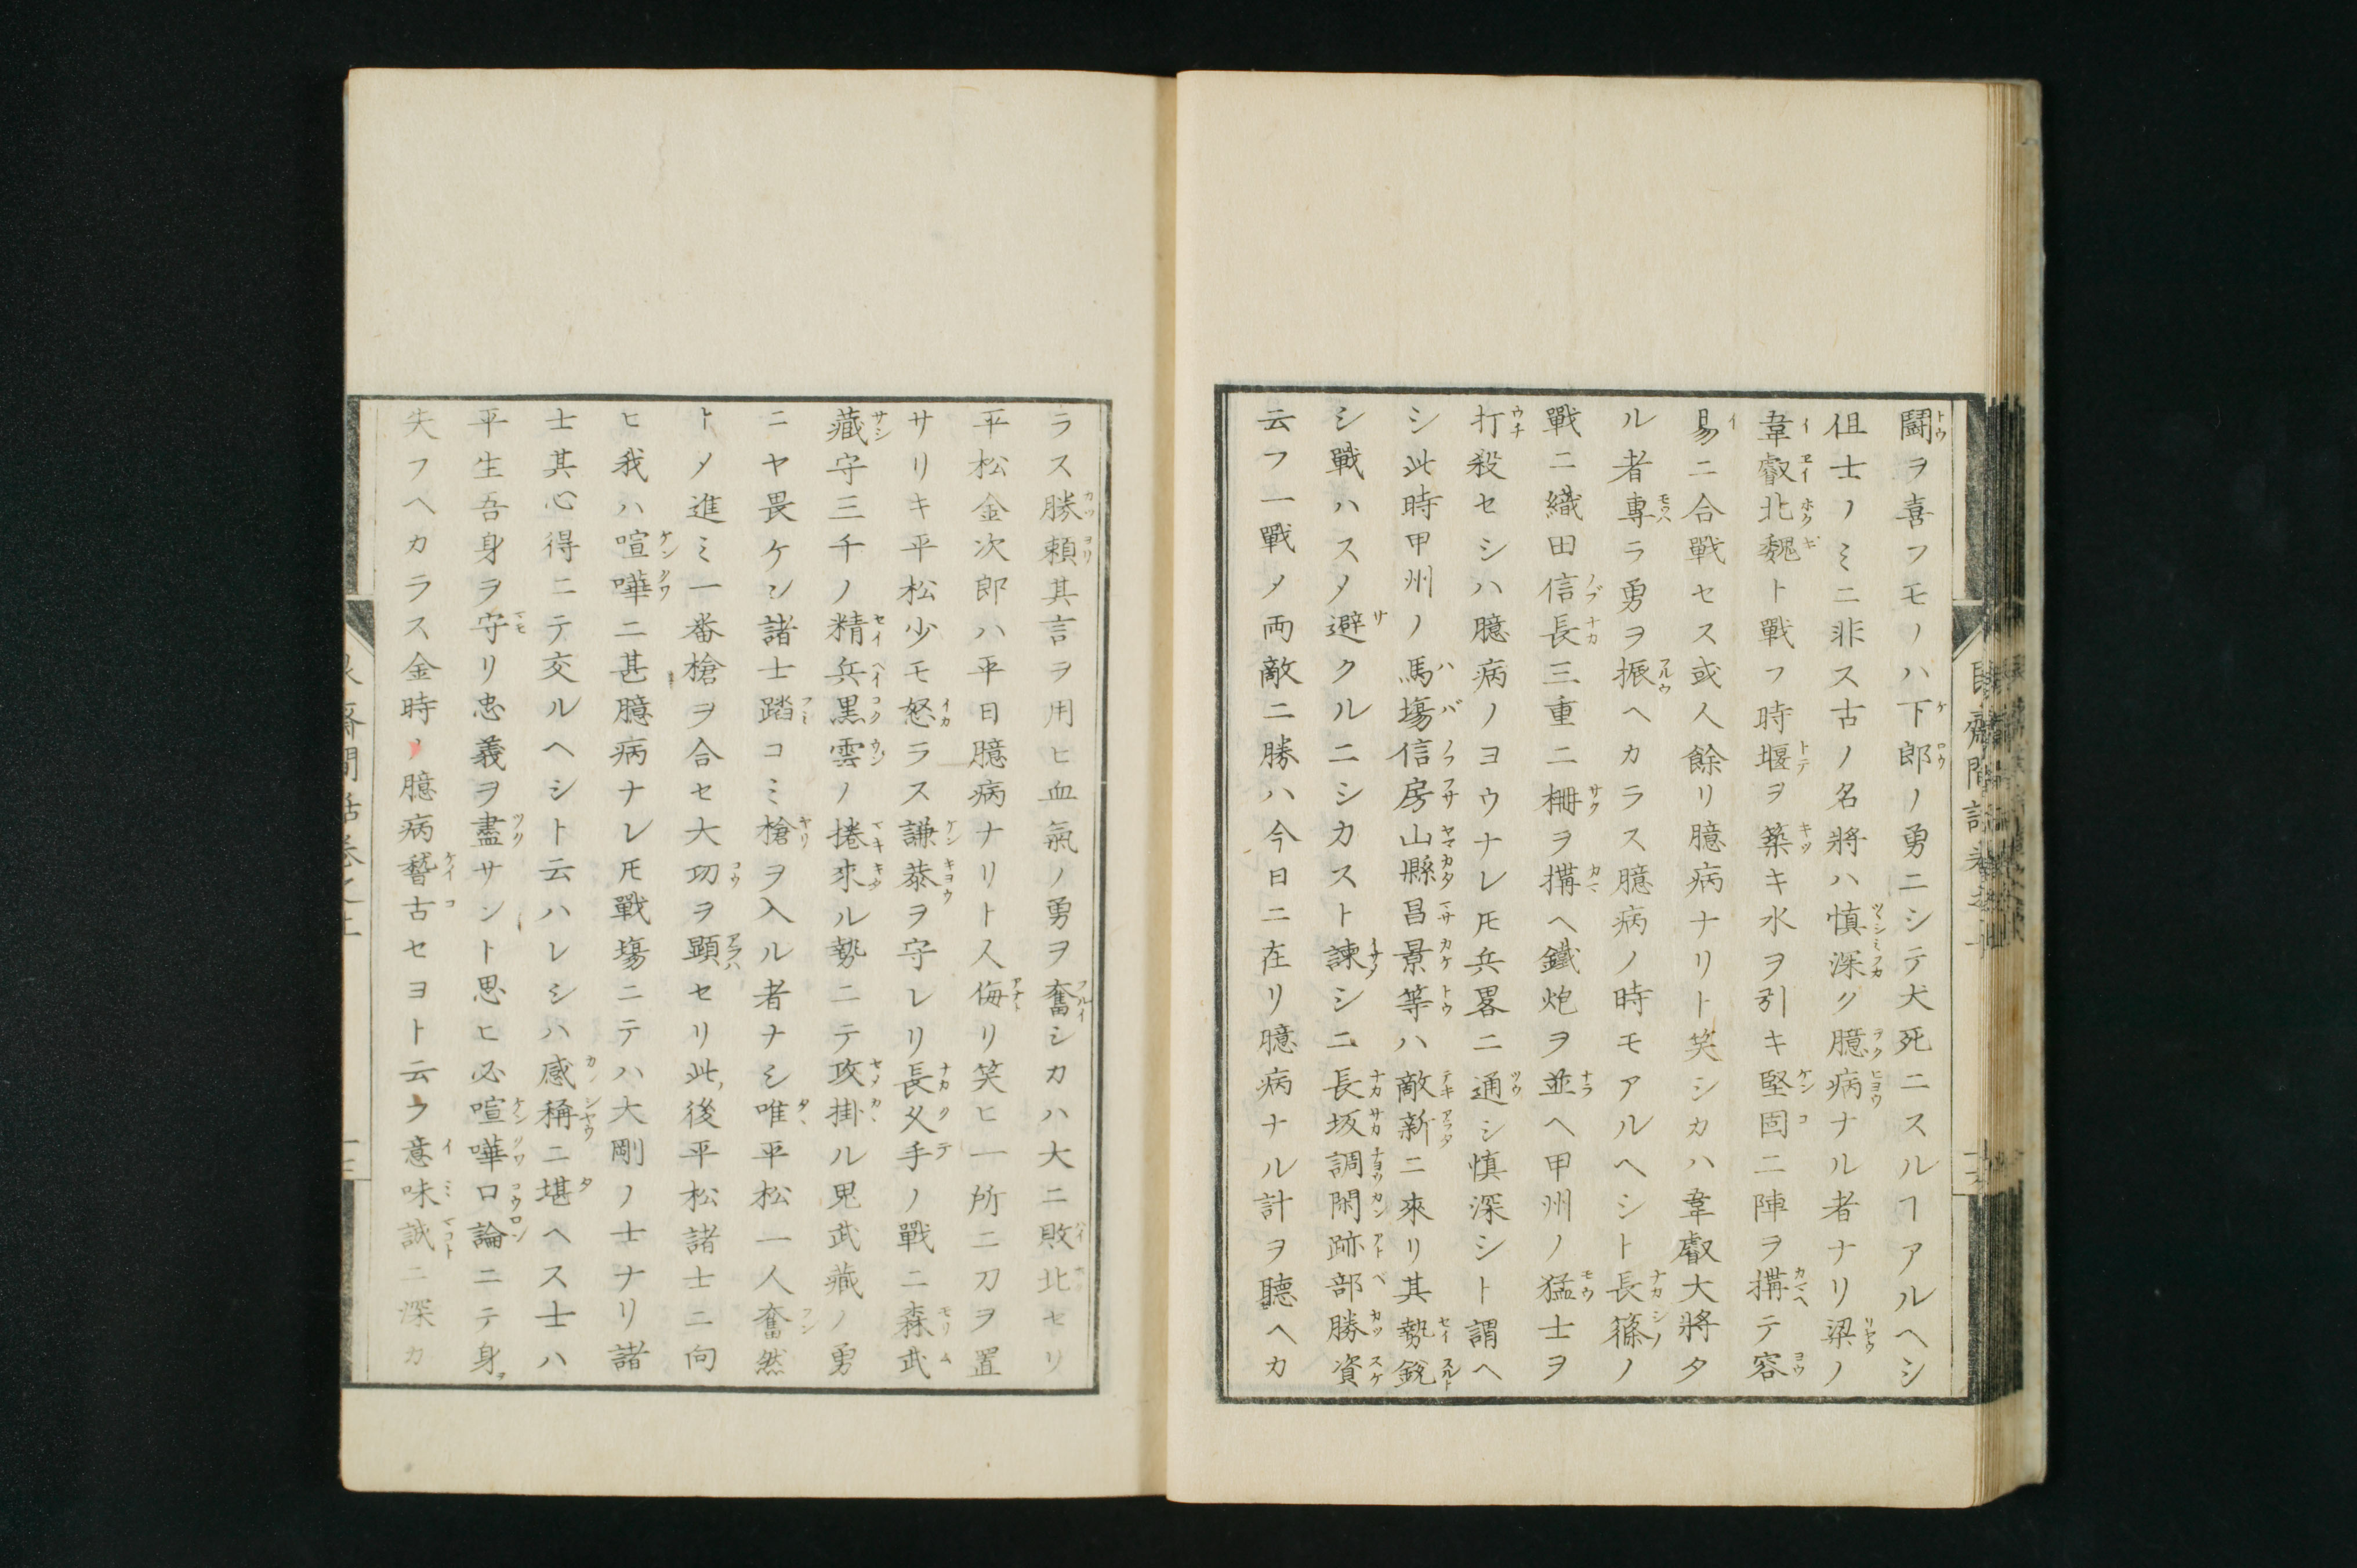 鬪ヲ喜フモノハ下郎ノ勇ニシテ犬死ニスルヿアルヘシ
但士ノミニ非ス古ノ名將ハ慎深ク臆病ナル者ナリ梁ノ
韋叡北魏ト戰フ時堰ヲ築キ水ヲ引キ堅固ニ陣ヲ搆テ容
易ニ合戰セス或人餘リ臆病ナリト笑シカハ韋叡大將タ
ル者專ラ勇ヲ振ヘカラス臆病ノ時モアルヘシト長篠ノ
戰ニ織田信長三重ニ柵ヲ搆ヘ鐵炮ヲ並ヘ甲州ノ猛士ヲ
打殺セシハ臆病ノヨウナレ𪜈兵畧ニ通シ慎深シト謂ヘ
シ此時甲州ノ馬塲信房山縣昌景等ハ敵新ニ來リ其勢銳
シ戰ハスメ避クルニシカスト諫シニ長坂調閑跡部勝資
云フ一戰メ両敵ニ勝ハ今日ニ在リ臆病ナル計ヲ聽ヘカ
ラス勝頼其言ヲ用ヒ血氣ノ勇ヲ奮シカハ大ニ敗北セリ
平松金次郎ハ平日臆病ナリト人侮リ笑ヒ一所ニ刀ヲ置
サリキ平松少モ怒ラス謙恭ヲ守レリ長久手ノ戰ニ森武
藏守三千ノ精兵黒雲ノ捲來ル勢ニテ攻掛ル鬼武藏ノ勇
ニヤ畏ケン諸士踏コミ槍ヲ入ル者ナシ唯平松一人奮然
トメ進ミ一番槍ヲ合セ大功ヲ顕セリ此後平松諸士ニ向
ヒ我ハ喧嘩ニ甚臆病ナレ𪜈戰塲ニテハ大剛ノ士ナリ諸
士其心得ニテ交ルヘシト云ハレシハ感稱ニ堪ヘス士ハ
平生吾身ヲ守リ忠義ヲ盡サント思ヒ必喧嘩口論ニテ身ヲ
失フヘカラス金時ノ臆病稽古セヨト云ウ意味誠ニ深カ